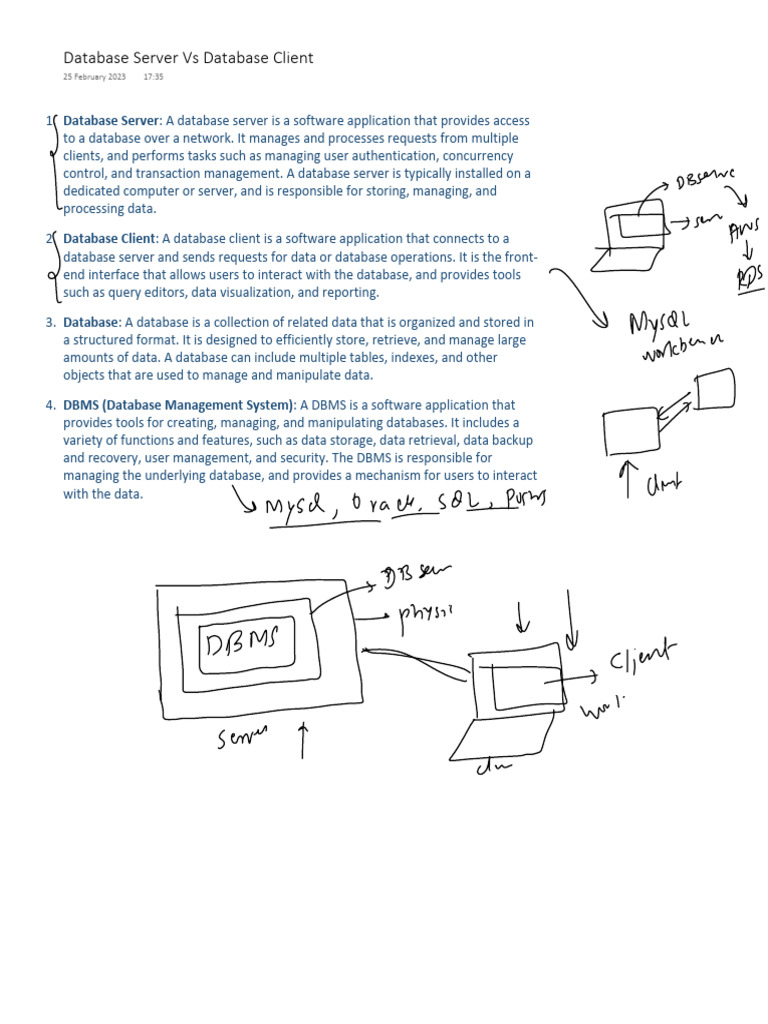 Database Server Vs Database Client
25 February 2023 17:35
1. Database Server: A database server is a software application that provides access
to a database over a network. It manages and processes requests from multiple
clients, and performs tasks such as managing user authentication, concurrency
control, and transaction management. A database server is typically installed on a
dedicated computer or server, and is responsible for storing, managing, and
processing data.
2. Database Client: A database client is a software application that connects to a
database server and sends requests for data or database operations. It is the front-
end interface that allows users to interact with the database, and provides tools
such as query editors, data visualization, and reporting.
3. Database: A database is a collection of related data that is organized and stored in
a structured format. It is designed to efficiently store, retrieve, and manage large
amounts of data. A database can include multiple tables, indexes, and other
objects that are used to manage and manipulate data.
4. DBMS (Database Management System): A DBMS is a software application that
provides tools for creating, managing, and manipulating databases. It includes a
variety of functions and features, such as data storage, data retrieval, data backup
and recovery, user management, and security. The DBMS is responsible for
managing the underlying database, and provides a mechanism for users to interact
with the data.
AWS
RDS
MySQL
Mysql, Oracle, SQL,
DBMS
Server
Client